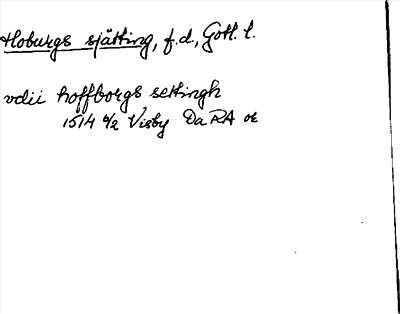 Hoburgs sjätting, f.d., Gotl. l.
vdii hoffborgs settingh
1514 6/2 Visby Da RA oe